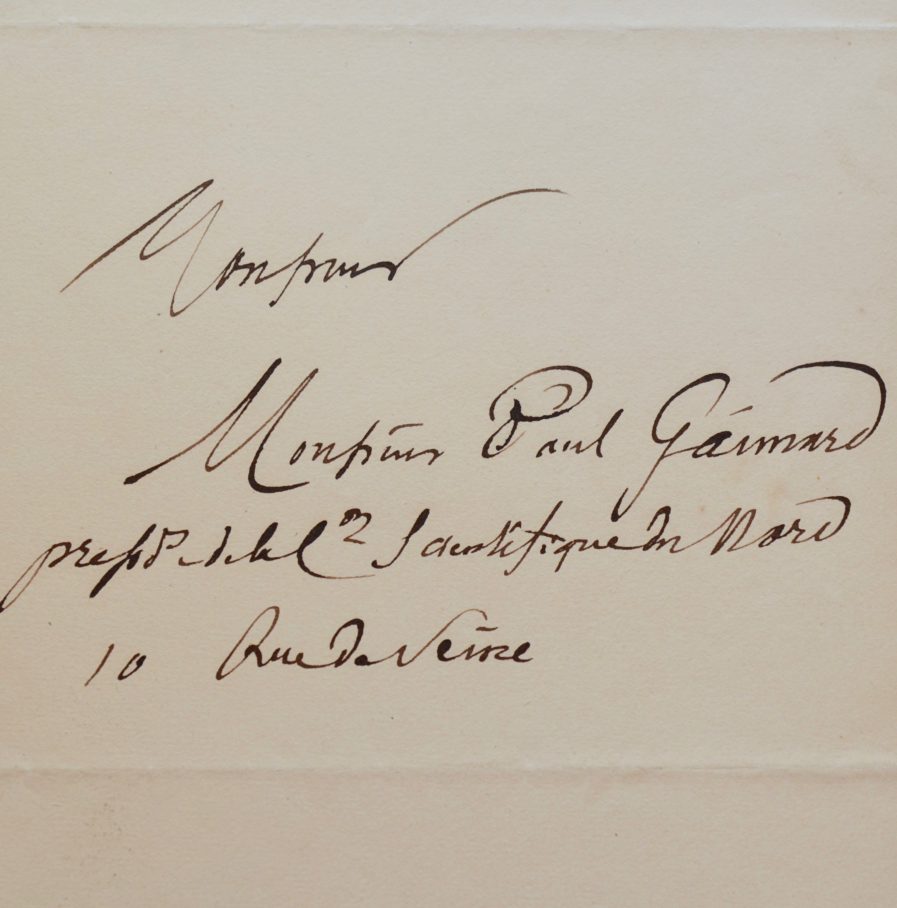 Monsieur
Monsieur Paul Gáimard
presidt de la Con Scientifique du Nord
10 Rue de Seine